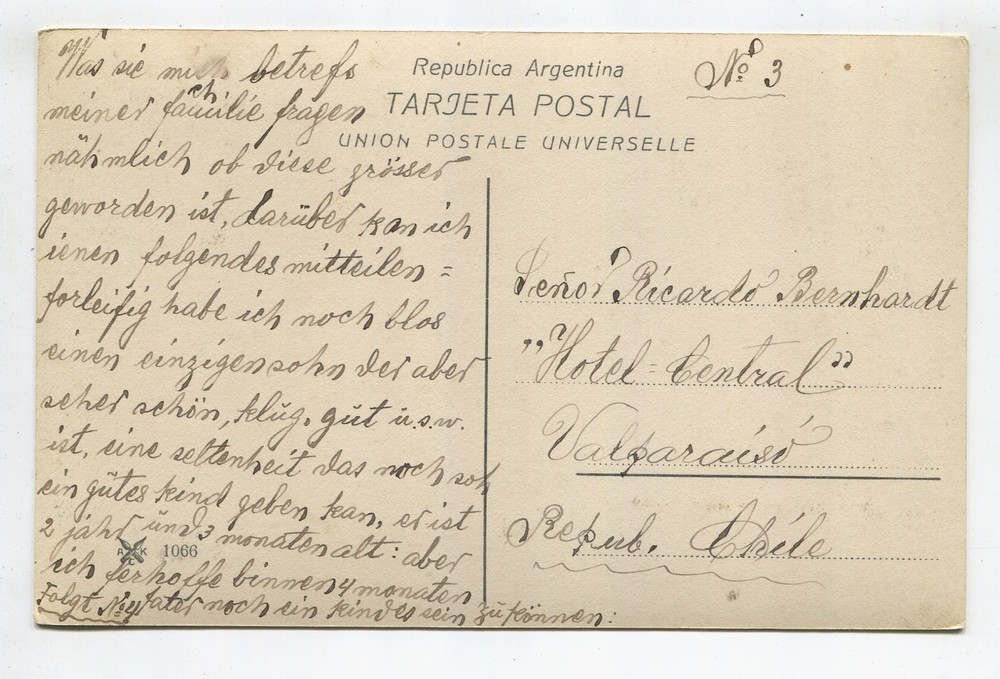 Was sie mich betrefs
meiner familie fragen
nähmlich ob diese grösser
geworden ist, darüber kan ich
ienen folgendes mitteilen =
forleifig habe ich noch blos
einen einzigen sohn der aber
seher schön, klug, gut u.s.w.
ist, eine seltenheit das noch soh
ein gutes kind geben kan, er ist
2 jahr und 3 monaten alt: aber
ich ferhoffe binnen 4 monaten
fater noch ein kindes sein zu können:
Folgt No 4
ARK
1066
Republica Argentina
TARJETA POSTAL
UNION POSTALE UNIVERSELLE
No 3
Señor Ricardo Bernhardt
"Hotel=Central"
Valparaíso
Repub. Chile